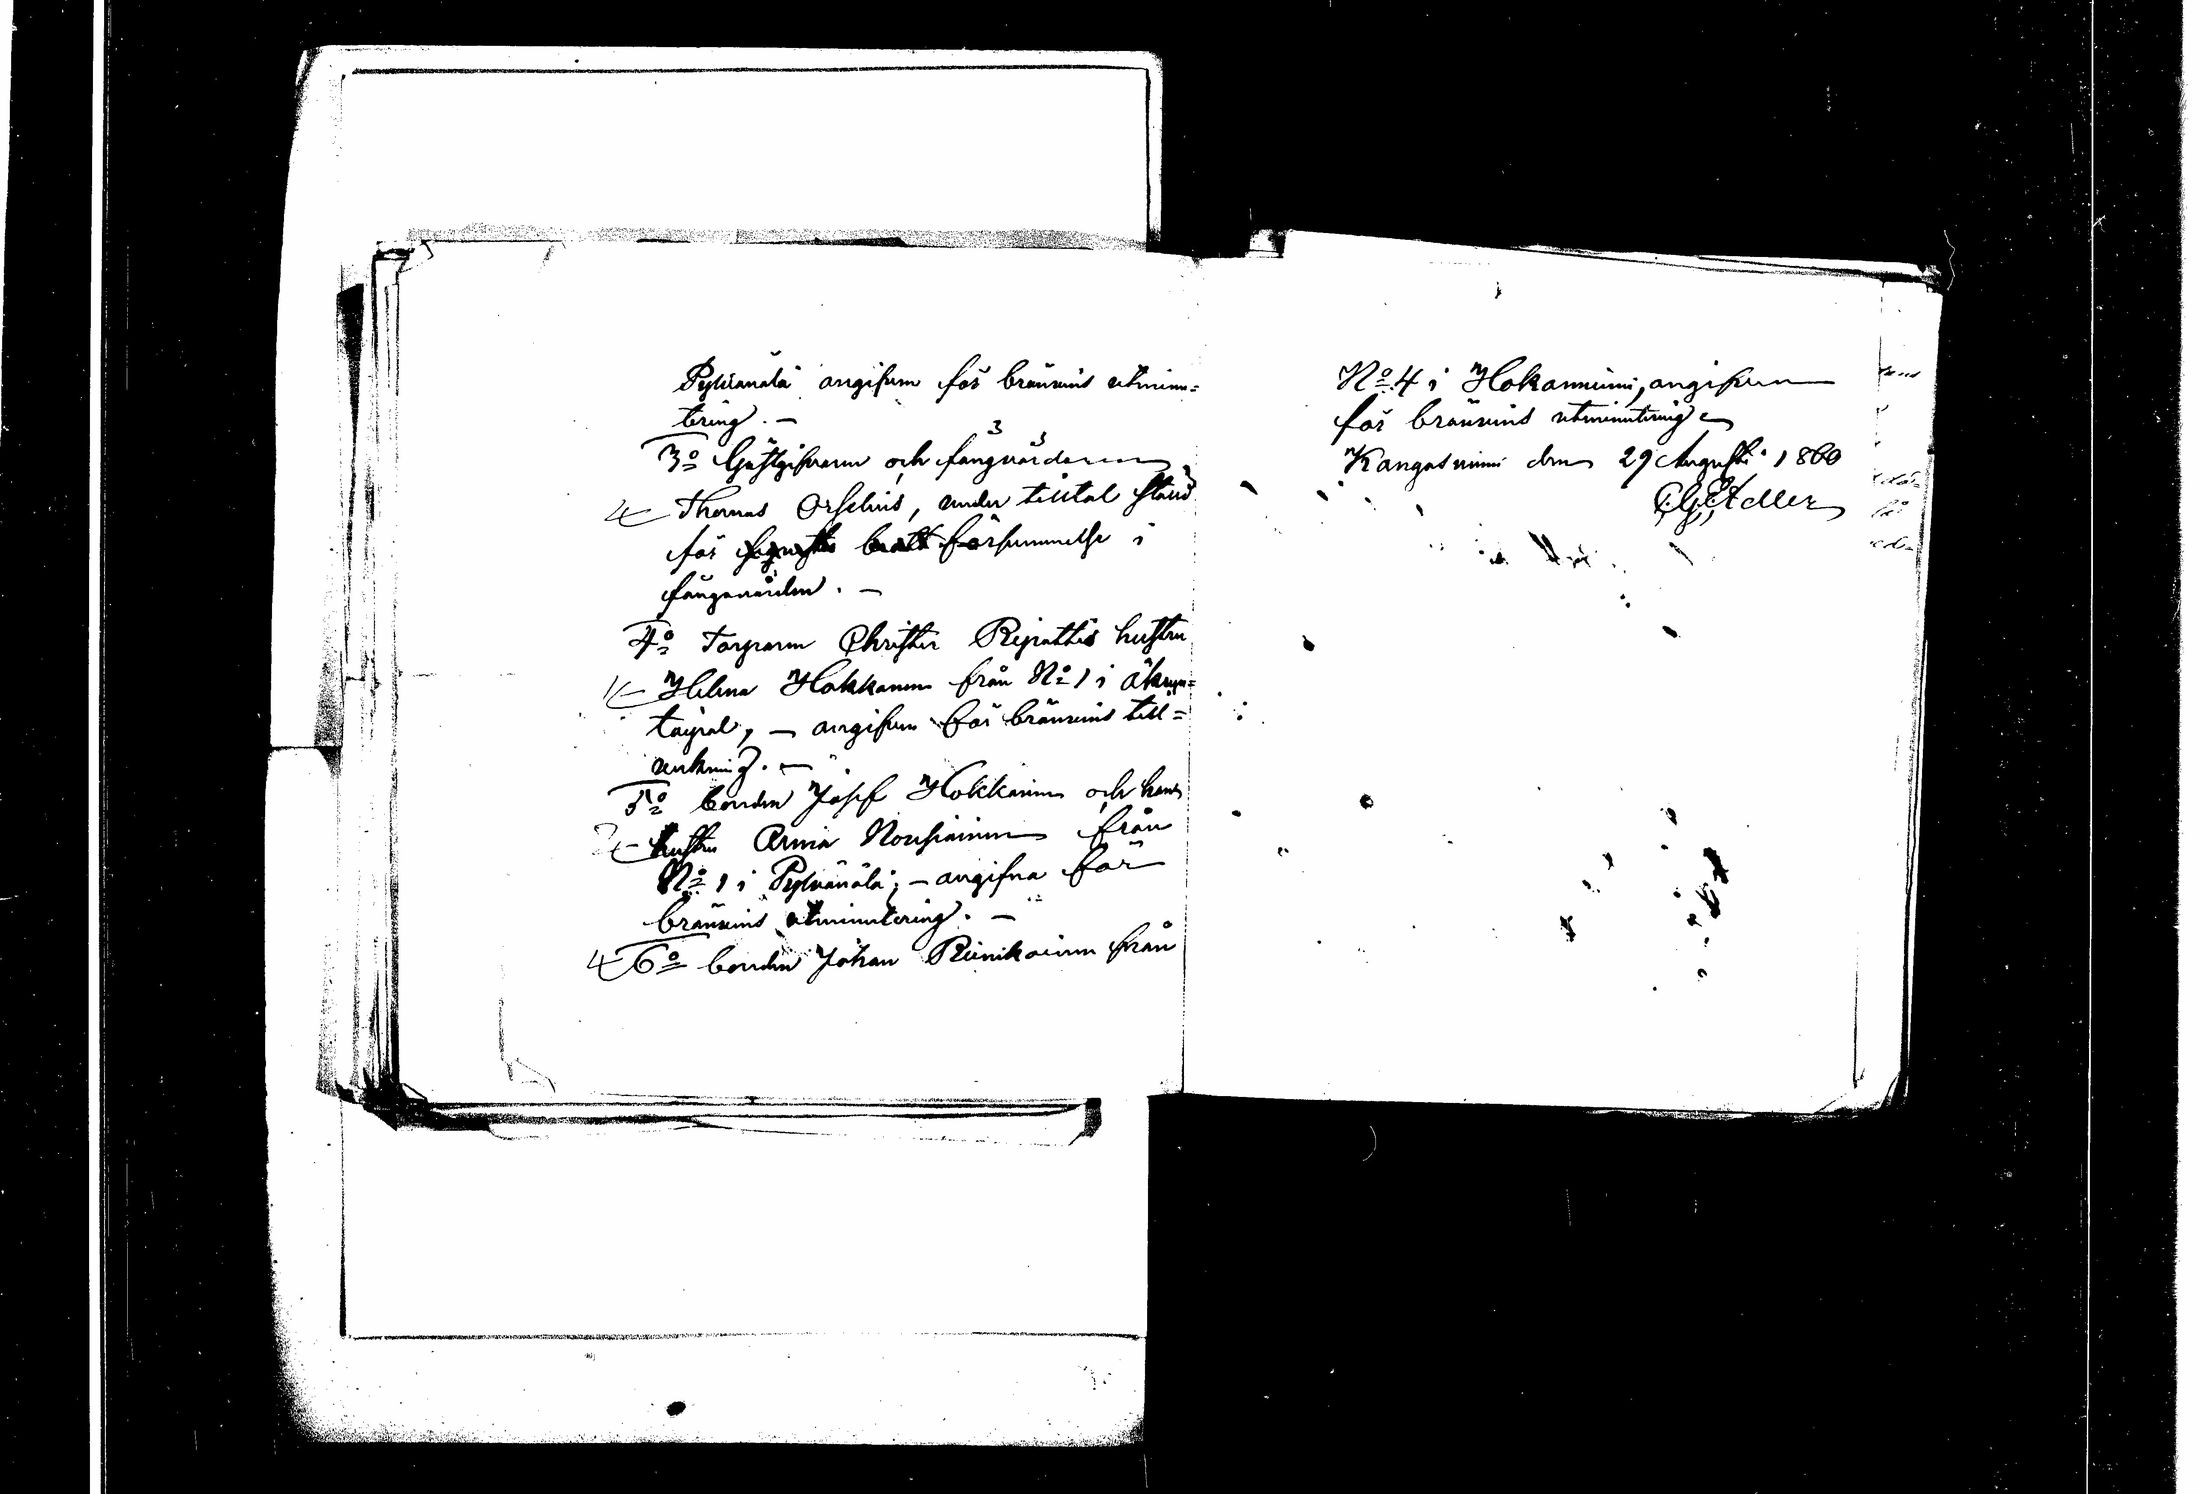 Pylvänälä angifven för bränvins utminu=
tering. —
3o Gästgifvaren och fångvårdaren
Thomas Orselius, under tilltal stäld
för försummelse i
fångavården. —
4o Torparen Christer Ripattis hustru
Helena Hokkanen från No 1 i
taipal, — angifven för bränvins till=
verkning. —
5o bonden Josef Hokkanen och hans
hustru Anna Nousiainen från
No 1 i Pylvänälä, — angifna för
bränvins utminutering. —
6o bonden Johan Reinikainen från
No 4 i Hokanniemi, angifven
för bränvins utminutering
Kangasniemi den 29 Augusti 1860